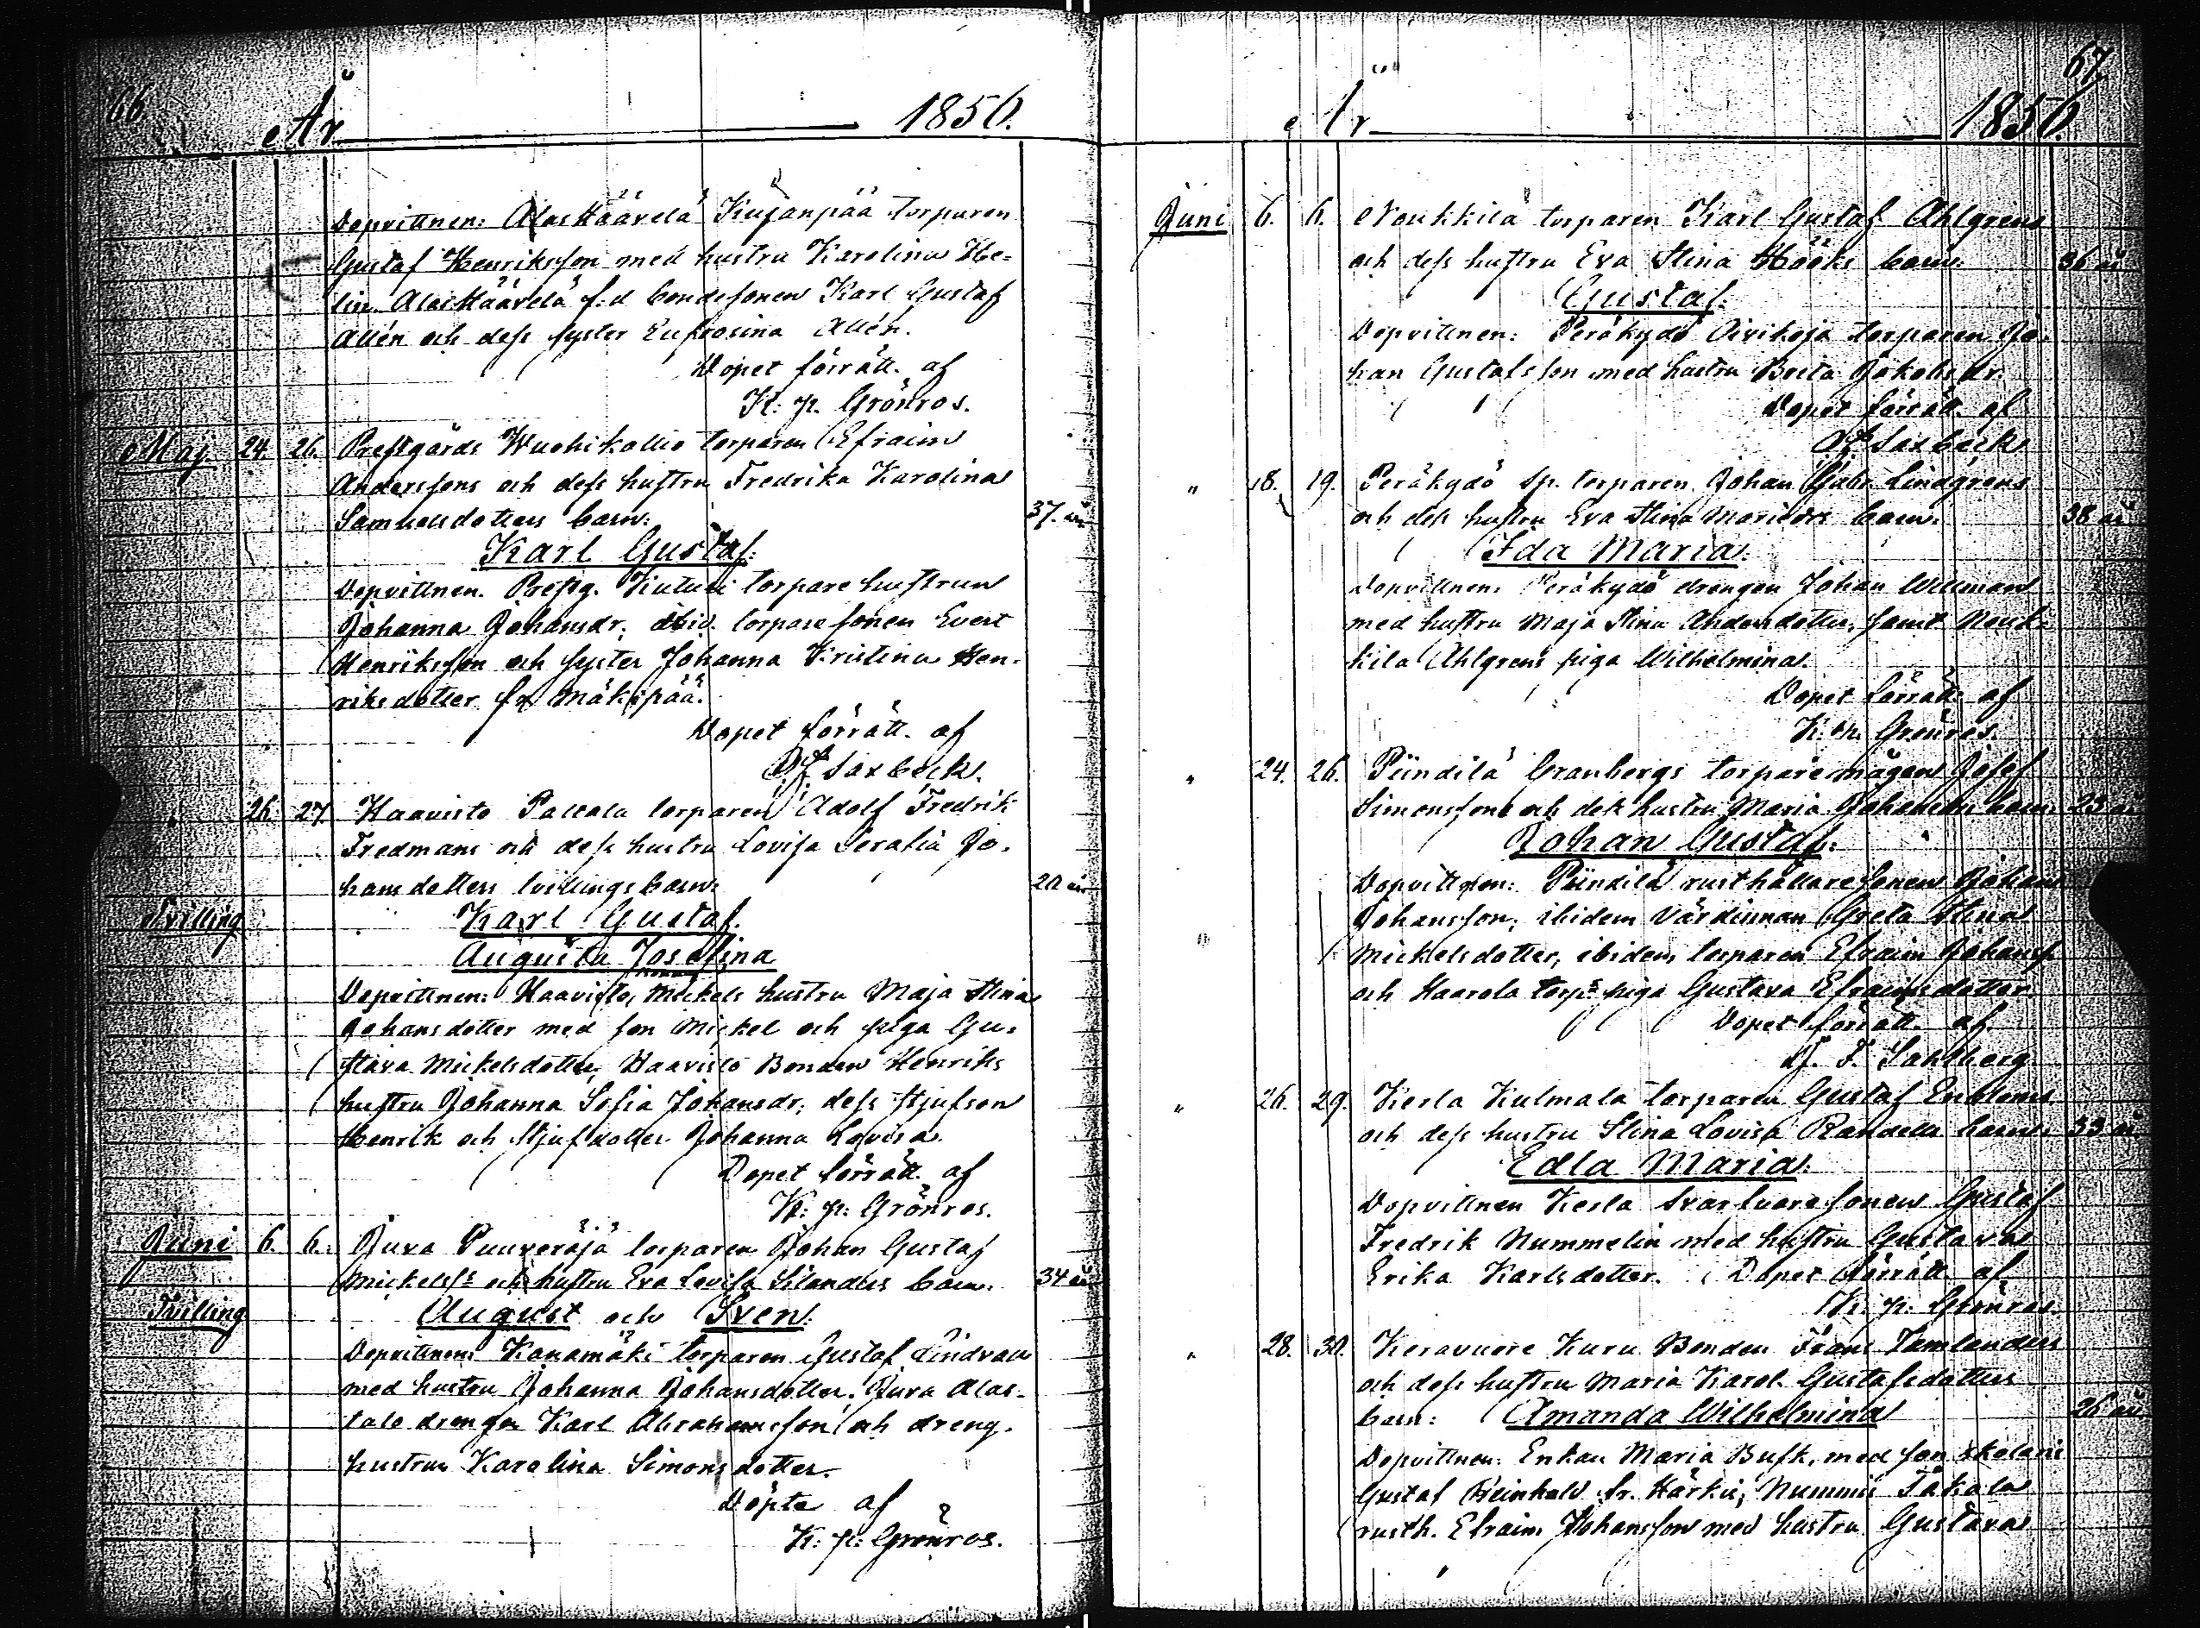 66.
År 1856.
Dopvittnen: AlasKäärelä Kujanpää torparen
Gustaf Henriksson med hustru Karolina He-
lin. AlasKäärelä f.d bondesonen Karl Gustaf
Allén och dess syster Eufrosina Allén.
Dopet förrätt. af
K: p. Grönros.
Maj. 24. 26. Prestgårds Wuohikallio torparen Efraim
Anderssons och dess hustru Fredrika Karolina
Samuelsdotters barn: 37. år
Karl Gustaf.
Dopvittnen. Prestg. Kutusi torpare hustrun
Johanna Johansdr, ibid. torpare sonen Evert
Henriksson och syster Johanna Kristina Hen-
riksdotter fr Mäkipää.
Dopet förrätt. af
Saxbeck.
" 26. 27. Haavisto torparen Adolf Fredrik
Fredmans och dess hustru Lovisa Serafia Jo-
hansdotters tvillingsbarn: år
Tvilling Karl Gustaf.
Augusta Josefina
Dopvittnen: Haavisto, Mickels hustru Maja Stina
Johansdotter med son Mickel och piga Gu-
stava Mickelsdotter, Haavisto Bonden Henriks
hustru Johanna Sofia Johansdr, dess stjufson
Henrik och stjufdotter Johanna Lovisa.
Dopet förrätt. af
K: p: Grönros.
Juni 6. 6. Juva Puuveräjä torparen Johan Gustaf
Mickelss: och hustru Eva Lovisa Silanders barn. 34 år
Tvilling August och Sven.
Dopvittnen: Kanamäki torparen Gustaf Lindvall
med hustru Johanna Johansdotter. Juva Alas-
talo drengen Karl Abrahamsson och dreng-
hustrun Karolina Simonsdotter.
Döpte af
K: p: Grönros.
67.
År 1856.
Juni 6. 6. Noukkila torparen Karl Gustaf Ahlgrens
och dess hustru Eva Stina Hööks barn: 36 år
Gustaf.
Dopvittnen: Peräkydö torparen Jo-
han Gustafsson med hustru Brita Jakobsdr.
Dopet förrätt. af
Saxbeck
" 18. 19. Peräkydö Sp. torparen Johan Gabr. Lindgrens
och dess hustru Eva Stina barn: 38 år
Ida Maria.
Dopvittnen: Peräkydö drengen Johan Willman
med hustru Maja Stina Andersdotter, samt Nouk-
kila Ahlgrens piga Wilhelmina.
Dopet förrätt. af
K. p. Grönros.
" 24. 26. Piindilä Granbergs torpare mågen Josef
Simonssons och dess hustru Maria barn: 23 år
Johan Gustaf.
Dopvittnen: Piindilä rusthållare sonen Johan
Johansson, ibidem värdinnan Greta Stina
Mickelsdotter, ibidem torparen Efraim Johanss.
och Haarola torp: piga Gustava Efraimsdotter
Dopet förrätt. af
F. Sahlberg
" 26. 29. Kerla Kulmala torparen Gustaf Enbloms
och dess hustru Stina Lovisa barn: 33 år
Edla Maria.
Dopvittnen Kerla Svarfvare sonen Gustaf
Fredrik Nummelin med hustru Gustava
Erika Karlsdotter. Dopet förrätt. af
K. p: Grönros
" 28. 30. Keravuore Kuru Bonden Frans Tamlanders
och dess hustru Maria Karol. Gustafsdotters
barn: Amanda Wilhelmina 26 år
Dopvittnen. Enkan Maria Busk, med son
Gustaf Reinhold fr. Härki, Nummis
rusth. Efraim Johansson med hustru Gustava